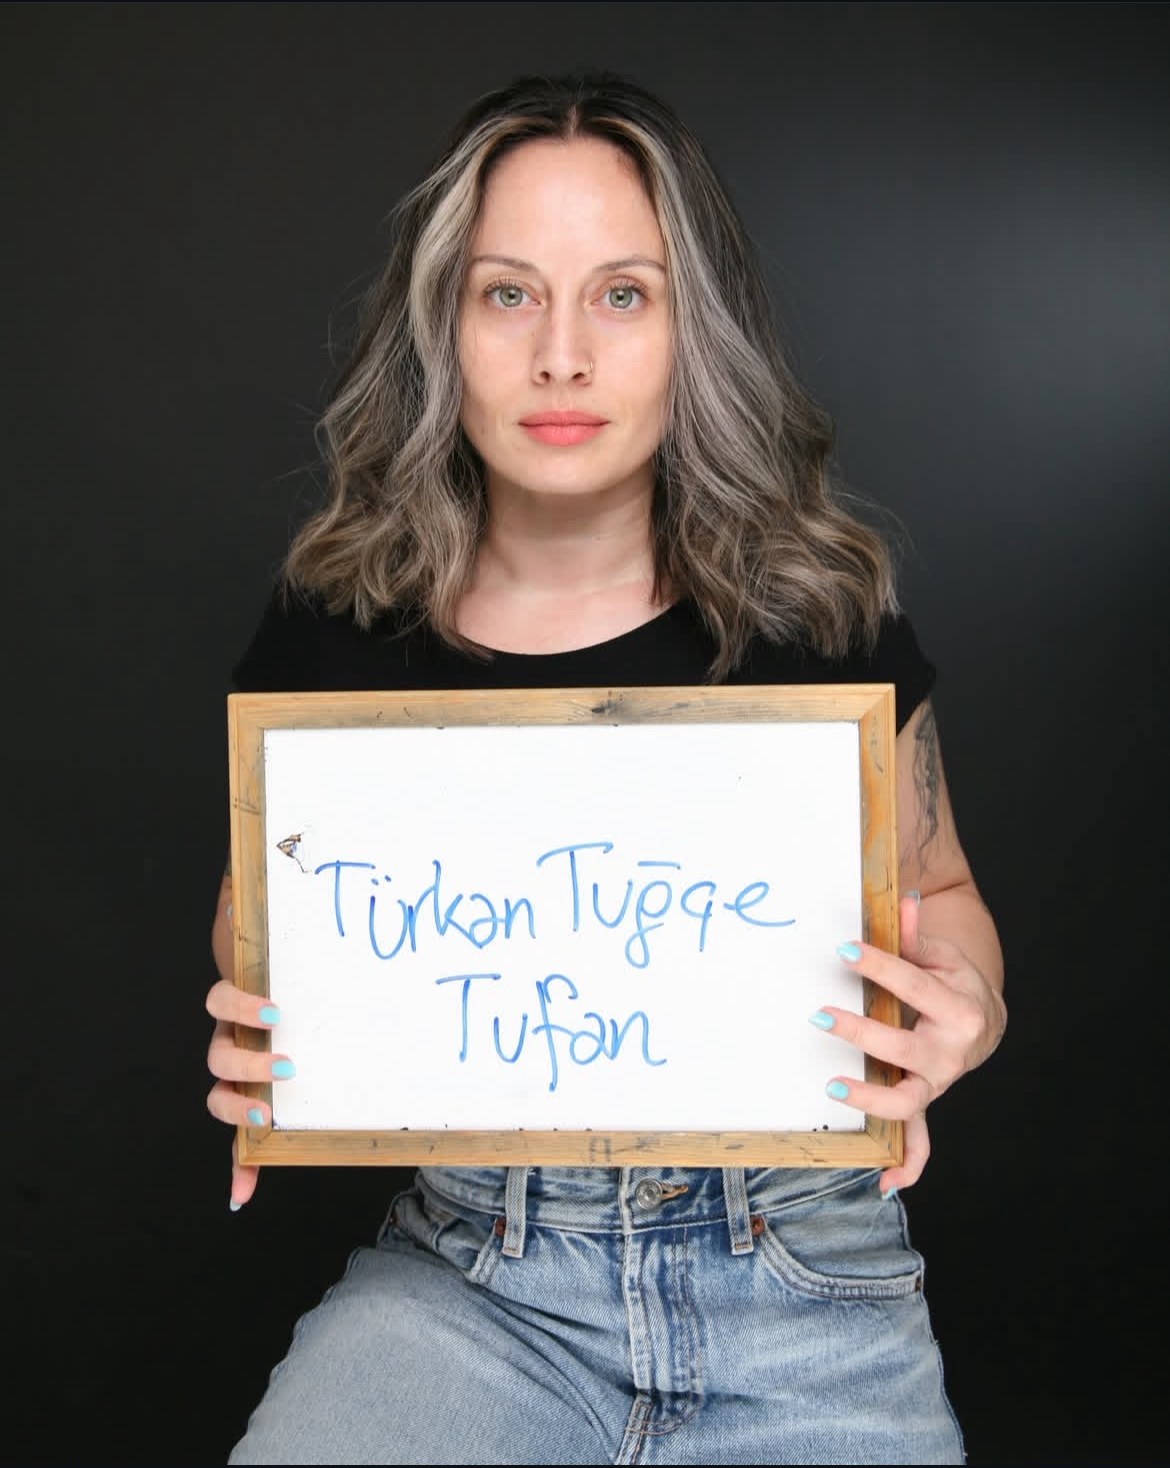 Türkan Tuğçe
Tufan